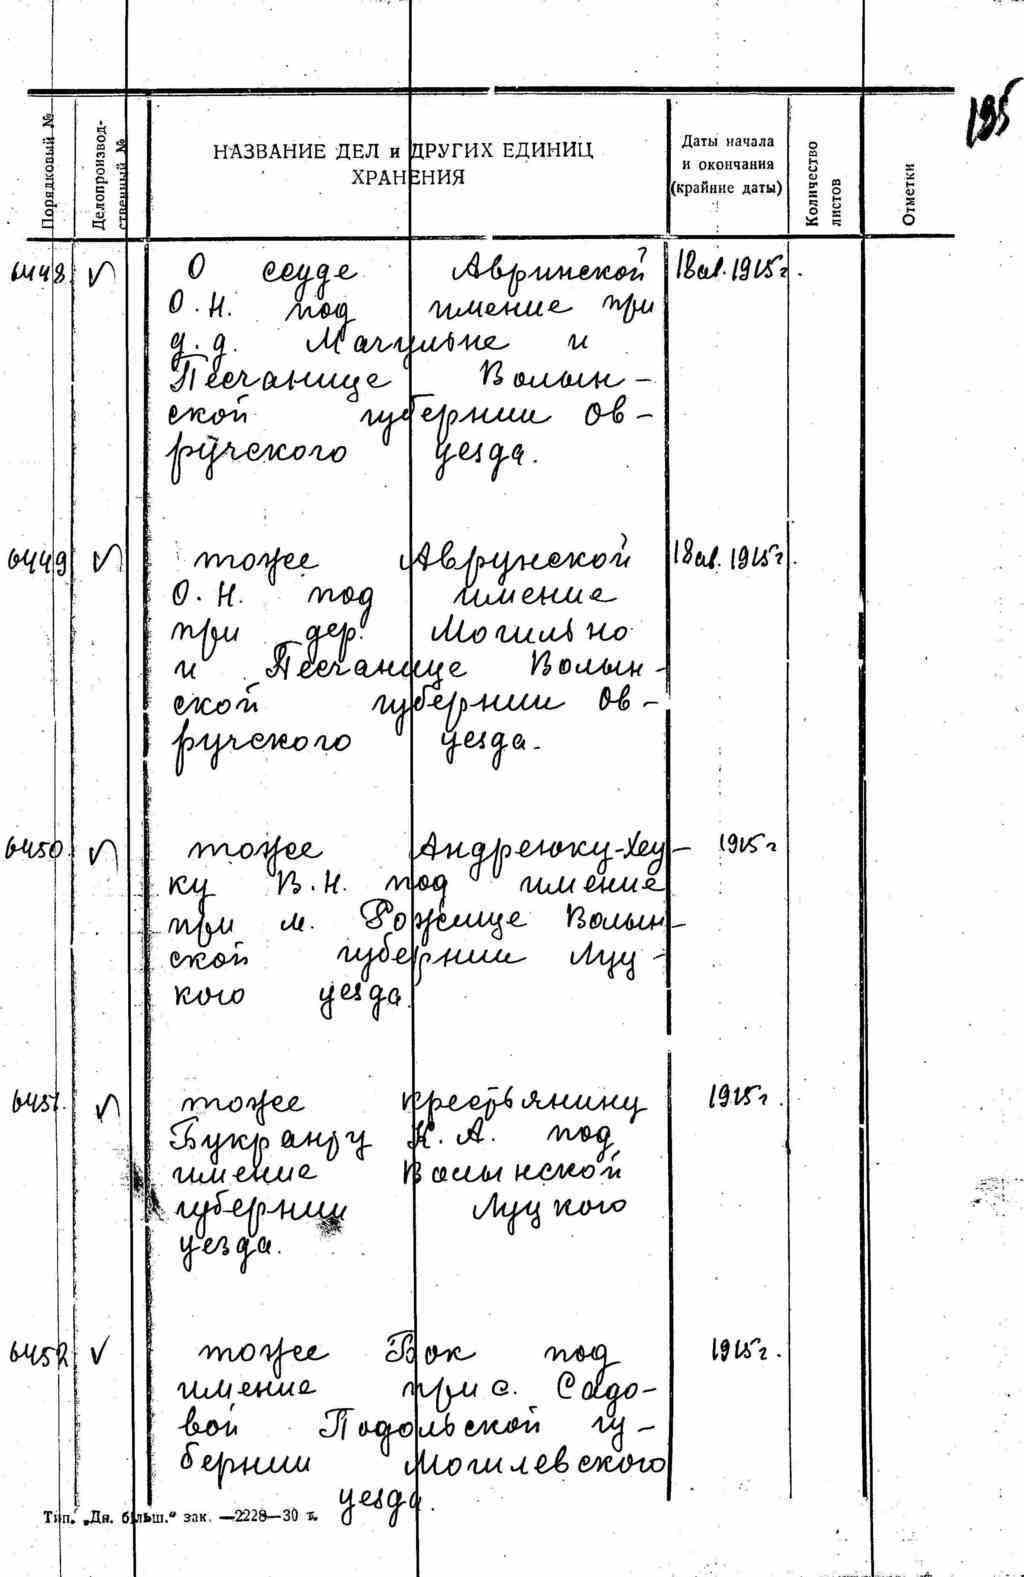 195
Порядковый №
Делопроизвод-
ственный №
НАЗВАНИЕ ДЕЛ и ДРУГИХ ЕДИНИЦ
ХРАНЕНИЯ
Даты начала
и окончания
(крайние даты)
Количество
листов
Отметки
6448 О ссуде Авринской 1915г.
О.Н. под имение при
д.д. Магульне и
Песчанице Волын-
ской губернии Ов-
ручского уезда.
6449 тоже Аврунской 1915г.
О.Н. под имение
при дер. Могильно
и Песчанице Волын-
ской губернии Ов-
ручского уезда.
6450 тоже Андреюку-Хец- 1915г
ку В.Н. под имение
при м. Рожище Волын-
ской губернии Луц-
кого уезда.
6451. тоже крестьянину 1915г.
Букранду К.А. под
имение Волынской
губернии Луцкого
уезда.
6452 тоже Бок под 1915г.
имение при с. Садо-
вой Подольской гу-
бернии Могилевского
уезда.
Тип. „Дн. більш.“ зак. —2228—30 т.